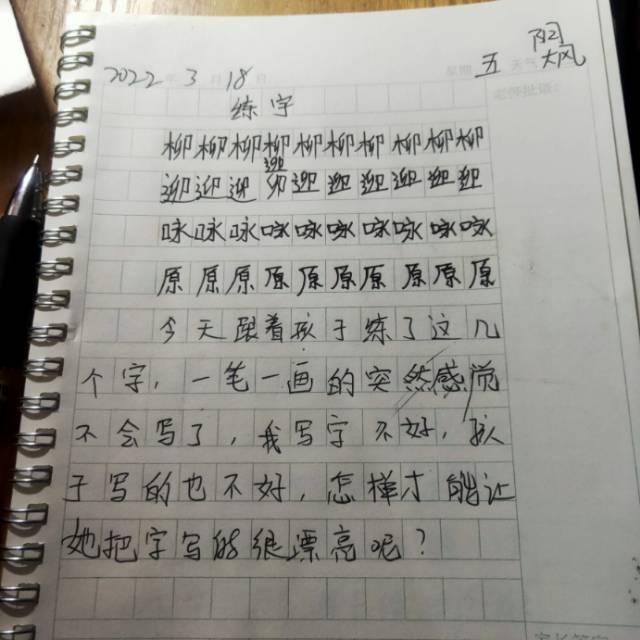 2022年3月18日 星期五 天气阴
大风
老师批语:
练字
柳柳柳柳柳柳柳柳柳柳
迎迎迎迎迎迎迎迎迎
咏咏咏咏咏咏咏咏咏咏
原原原原原原原原原原
今天跟着孩子练了这几
个字,一笔一画的突然感觉
不会写了,我写字不好,孩
子写的也不好,怎样才能让
她把字写的很漂亮呢?